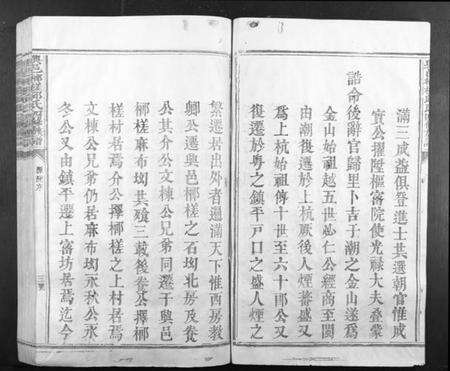 滿三咸益俱登進士其選朝官惟咸
實公擢陞樞富院使光祿大夫叠蒙
誥命後辭官歸里卜吉于潮之金山遂爲
金山始祖越五世必仁公經商至閩
由潮復遷於上杭厥後人煙蕃盛又
爲上杭始祖傳十世至六十郎公又
復遷於粤之鎮平戸口之盛人煙之
繁遷居出外者遍滿天下惟西房教
卿公遷興邑槎之石坳北房及養
公其介公文棟公兄弟同遷于興邑
槎麻布坳其殯三載後養公擇
槎村居焉介公擇槎之上村居焉
文棟公兄弟仍居麻布坳永秋公永
冬公又由鎮平遷上富坊居焉迄今